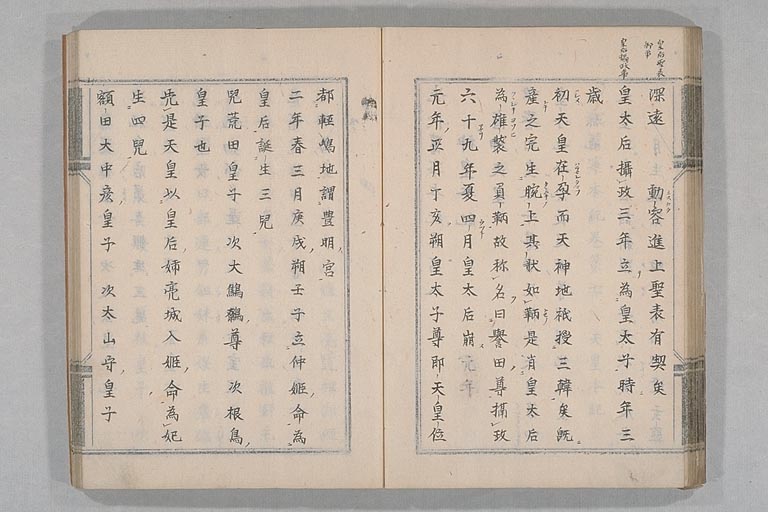 皇后聖表
御事
皇后攝政事
深遠動容進止聖表有契矣
皇太后攝政三年立為皇太子時年三
歳
初天皇在孕而天神地祇授三韓矣既
産之完生腕上其狀如鞆是肖皇太后
為雄裝之負鞆故称名曰譽田尊攝政
六十九年夏四月皇太后崩元年
元年正月丁亥朔皇太子尊即天皇位
都軽嶋地謂豊明宮
二年春三月庚戌朔壬子立仲姫命為
皇后誕生三兒
兒荒田皇子次大鷦鷯尊次根鳥
皇子也
先是天皇以皇后姉髙城入姫命為妃
生四兒
額田大中彦皇子次大山守皇子